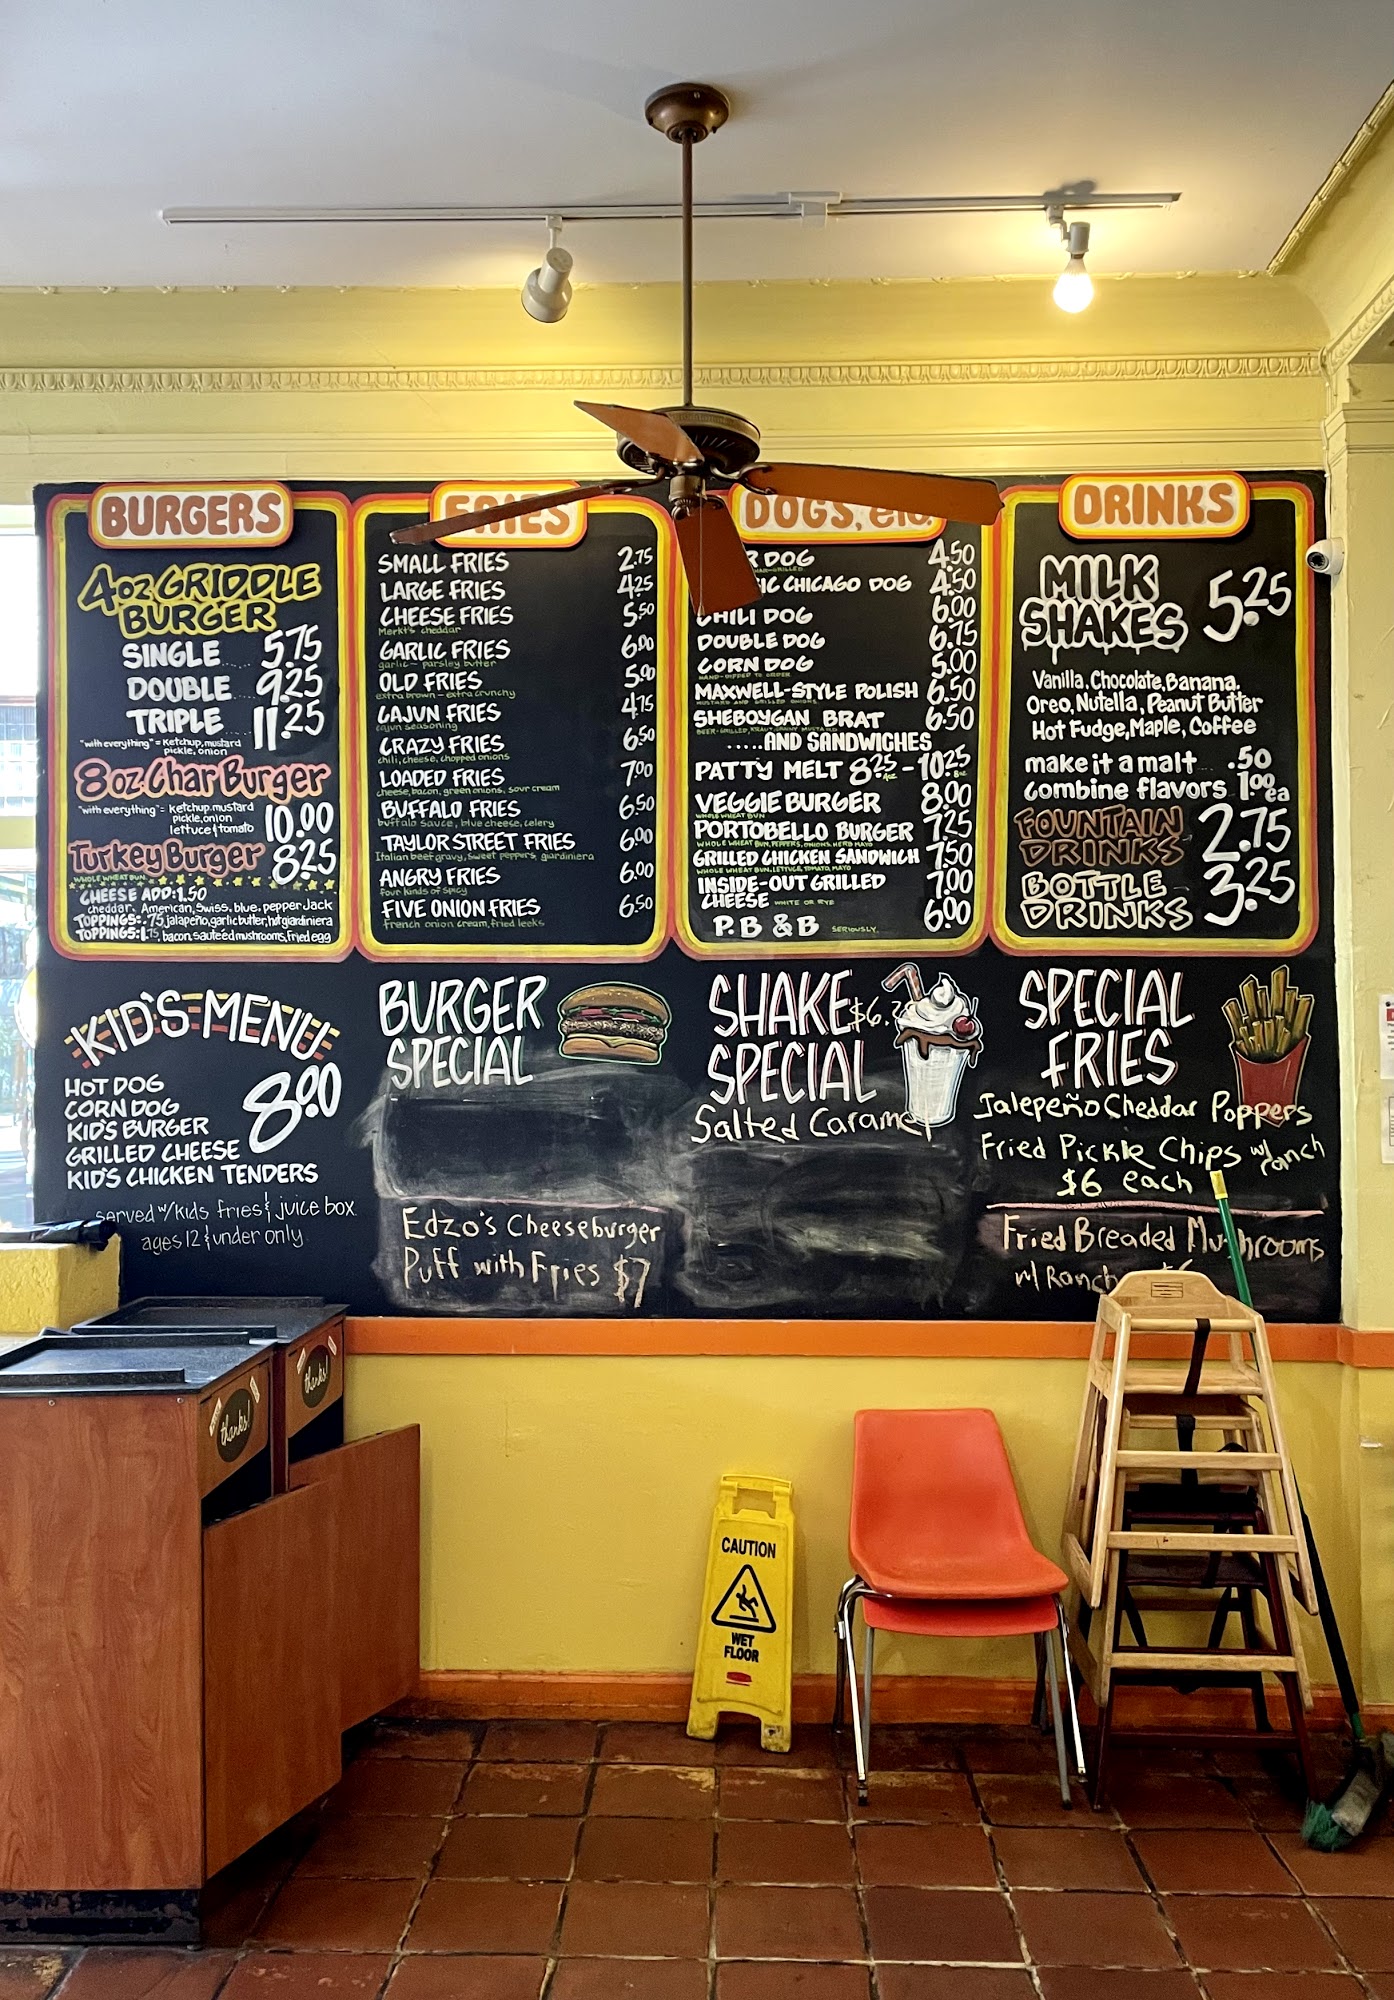 BURGERS
4oz GRIDDLE
BURGER
SINGLE .... 5.75
DOUBLE ... 9.25
TRIPLE .... 11.25
"with everything" = Ketchup, mustard
pickle, onion
8oz Char Burger
"with everything" = Ketchup, mustard
pickle, onion
lettuce & tomato
10.00
Turkey Burger 8.25
WHOLE WHEAT BUN
CHEESE ADD: 1.50
cheddar, American, Swiss, blue, pepper Jack
TOPPINGS: .75 jalapeño, garlic butter, hot giardiniera
TOPPINGS: 1.75, bacon, sauteed mushrooms, fried egg
FRIES
SMALL FRIES 2.75
LARGE FRIES 4.25
CHEESE FRIES 5.50
Merkt's cheddar
GARLIC FRIES 6.00
garlic - parsley butter
OLD FRIES 5.00
extra brown - extra crunchy
CAJUN FRIES 4.75
cajun seasoning
CRAZY FRIES 6.50
chili, cheese, chopped onions
LOADED FRIES 7.00
cheese, bacon, green onions, sour cream
BUFFALO FRIES 6.50
buffalo sauce, blue cheese, celery
TAYLOR STREET FRIES 6.00
Italian beef gravy, sweet peppers, giardiniera
ANGRY FRIES 6.00
four kinds of spicy
FIVE ONION FRIES 6.50
french onion cream, fried leeks
DOGS, etc.
DOG 4.50
CHICAGO DOG 4.50
CHILI DOG 6.00
DOUBLE DOG 6.75
CORN DOG 5.00
HAND-DIPPED TO ORDER
MAXWELL-STYLE POLISH 6.50
MUSTARD AND GRILLED ONIONS
SHEBOYGAN BRAT 6.50
BEER-GRILLED, KRAUT, MUSTARD
.....AND SANDWICHES
PATTY MELT 8.25 4oz - 10.25 8oz
VEGGIE BURGER 8.00
WHOLE WHEAT BUN
PORTOBELLO BURGER 7.25
WHOLE WHEAT BUN, PEPPERS, ONIONS, HERB MAYO
GRILLED CHICKEN SANDWICH 7.50
WHOLE WHEAT BUN, LETTUCE, TOMATO, MAYO
INSIDE-OUT GRILLED
CHEESE WHITE OR RYE 7.00
P. B & B SERIOUSLY. 6.00
DRINKS
MILK
SHAKES 5.25
Vanilla, Chocolate, Banana,
Oreo, Nutella, Peanut Butter
Hot Fudge, Maple, Coffee
make it a malt ..50
combine flavors 1.00 ea
FOUNTAIN
DRINKS 2.75
BOTTLE
DRINKS 3.25
KID'S MENU
HOT DOG
CORN DOG
KID'S BURGER
GRILLED CHEESE
KID'S CHICKEN TENDERS
8.00
served w/kids fries & juice box
ages 12 & under only
BURGER
SPECIAL
Edzo's Cheeseburger
Puff with Fries $7
SHAKE
SPECIAL
Salted Caramel
SPECIAL
FRIES
Jalepeño Cheddar Poppers
Fried Pickle Chips w/ ranch
$6 each
Fried Breaded Mushrooms
w/ Ranch
thanks!
thanks!
CAUTION
WET
FLOOR